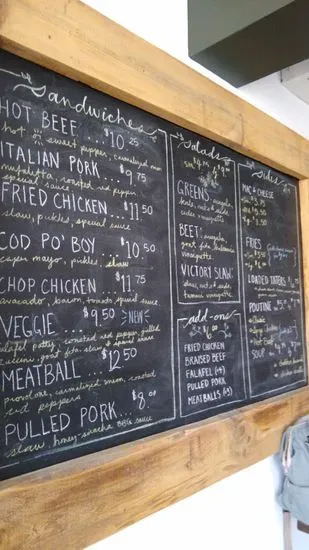 Sandwiches
HOT BEEF ... $10.25
hot sweet pepper, caramelized onion
special sauce
ITALIAN PORK ... $9.75
muffaletta, roasted red pepper,
special sauce
FRIED CHICKEN ... $11.50
slaw, pickles, special sauce
COD PO' BOY ... $10.50
cajun mayo, pickles, slaw
CHOP CHICKEN ... $11.75
avocado, bacon, tomato, special sauce
VEGGIE ... $9.50 NEW
falafel patty, roasted red pepper, grilled
zucchini, goat feta, slaw & special sauce
MEATBALL ... $12.50
provolone, caramelized onion, roasted
red peppers
PULLED PORK ... $8.00
slaw, honey-sriracha BBQ sauce
Salads
GREENS:
kale,
cider vinaigrette
BEET: arugula,
goat feta,
vinaigrette
VICTORY SLAW:
slaw,
vinaigrette
add-ons
FRIED CHICKEN
BRAISED BEEF
FALAFEL (4)
PULLED PORK
MEATBALLS (3)
Sides
MAC & CHEESE
FRIES
LOADED TATERS
POUTINE
SOUP